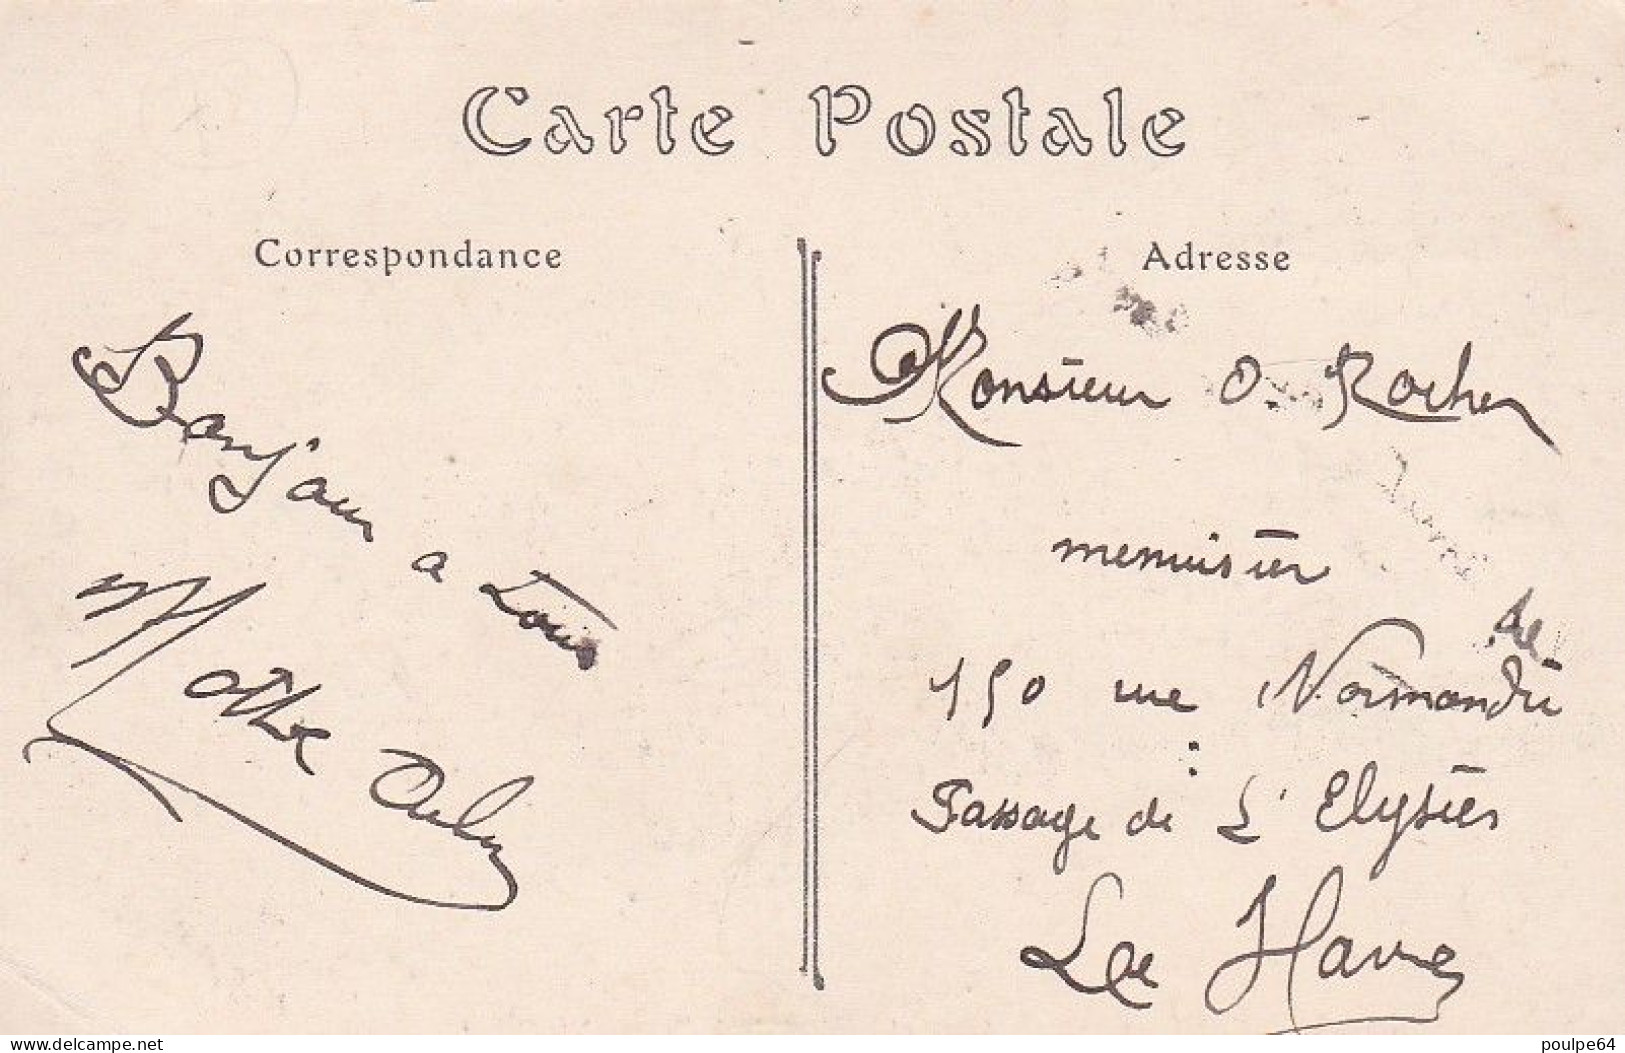 Carte Postale
Correspondance
Bonjour a Tous
Mothe
Adresse
Monsieur O. Rocher
menuisier
150 rue de Normandie
Passage de L'Elysées
Le Havre
www.delcampe.net
poulpe64